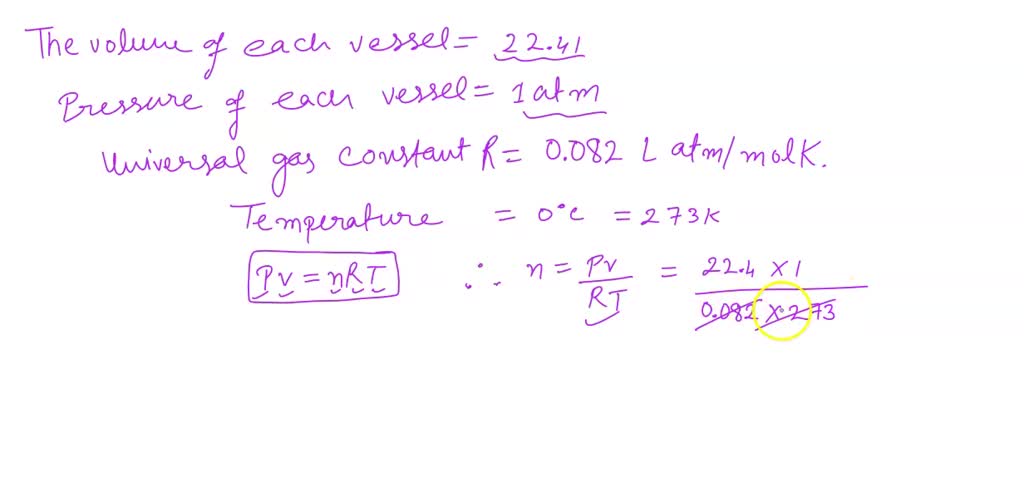 The volume of each vessel = 22.41
Pressure of each vessel = 1 atm
Universal gas constant R = 0.082 L atm/molK.
Temperature = 0°C = 273K
PV = nRT ∴ n = PV/RT = 22.4 X 1/0.082 X 273